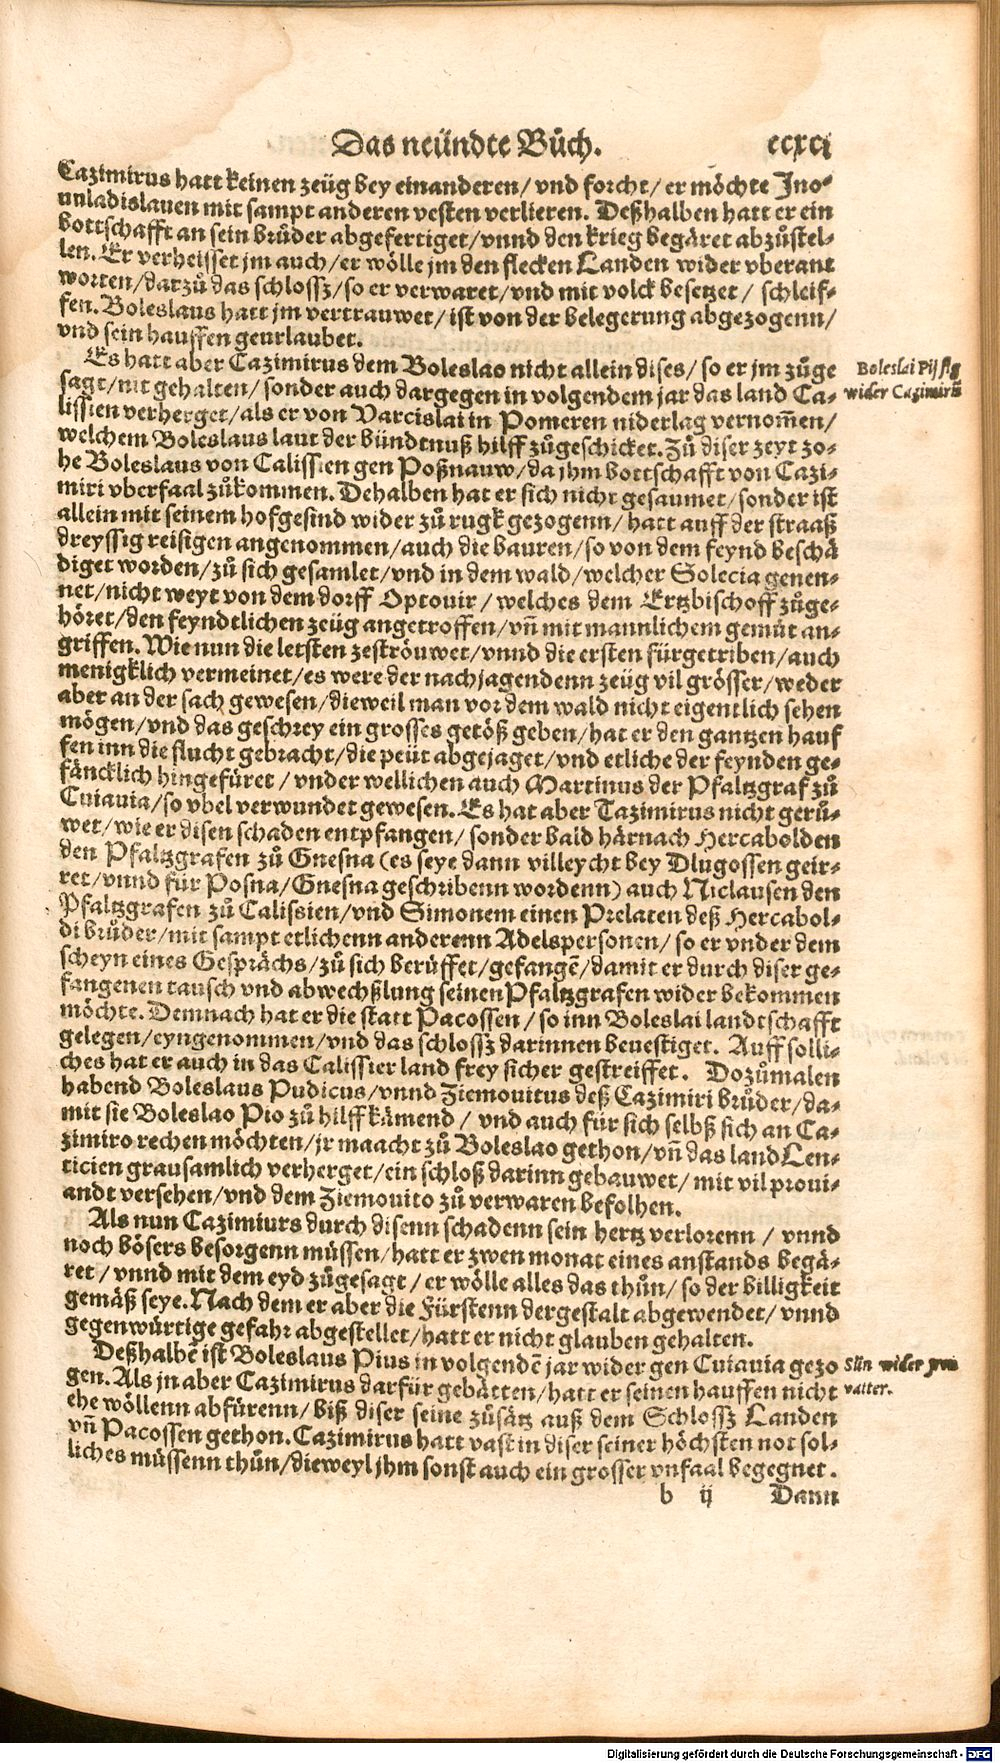 Das neündte Bůch. ccxci
Cazimirus hatt keinen zeüg bey einanderen/ vnd forcht/ er möchte Jno-
uuladislauen mit sampt anderen vesten verlieren. Deßhalben hatt er ein
bottschafft an sein brůder abgefertiget/ vnnd den krieg begäret abzůstel-
len. Er verheisset jm auch/ er wölle jm den flecken Landen wider vberant
worten/ darzů das schlossz/ so er verwaret/ vnd mit volck besetzet/ schleif-
fen. Boleslaus hatt jm vertrauwet/ ist von der belegerung abgezogenn/
vnd sein hauffen geurlaubet.
Es hatt aber Cazimirus dem Boleslao nicht allein dises/ so er jm zůge
sagt/ nit gehalten/ sonder auch dargegen in volgendem jar das land Ca-
lissien verherget/ als er von Varcislai in Pomeren niderlag vernom̃en/
welchem Boleslaus laut der bündtnuß hilff zůgeschicket. Zů diser zeyt zo-
he Boleslaus von Calissien gen Poßnauw/ da jhm bottschafft von Cazi-
miri vberfaal zůkommen. Dehalben hat er sich nicht gesaumet/ sonder ist
allein mit seinem hofgesind wider zů rugk gezogenn/ hatt auff der straaß
dreyssig reisigen angenommen/ auch die bauren/ so von dem feynd beschä
diget worden/ zů sich gesamlet/ vnd in dem wald/ welcher Solecia genen-
net/ nicht weyt von dem dorff Optouir/ welches dem Ertzbischoff zůge-
höret/ den feyndtlichen zeüg angetroffen/ vñ mit mannlichem gemüt an-
griffen. Wie nun die letsten zeströuwet/ vnnd die ersten fürgetriben/ auch
menigklich vermeinet/ es were der nachjagendenn zeüg vil grösser/ weder
aber an der sach gewesen/ dieweil man vor dem wald nicht eigentlich sehen
mögen/ vnd das geschrey ein grosses getöß geben/ hat er den gantzen hauf
fen inn die flucht gebracht/ die peüt abgejaget/ vnd etliche der feynden ge-
fäncklich hingefüret/ vnder wellichen auch Martinus der Pfaltzgraf zů
Cuiauia/ so vbel verwundet gewesen. Es hat aber Tazimirus nicht gerů-
wet/ wie er disen schaden entpfangen/ sonder bald härnach Hercabolden
den Pfaltzgrafen zů Gnesna (es seye dann villeycht bey Dlugossen geir-
ret/ vnnd für Posna/ Gnesna geschribenn wordenn) auch Niclausen den
Pfaltzgrafen zů Calissien/ vnd Simonem einen Prelaten deß Hercabol-
di brůder/ mit sampt etlichenn anderenn Adelspersonen/ so er vnder dem
scheyn eines Gesprächs/ zů sich berüffet/ gefangẽ/ damit er durch diser ge-
fangenen tausch vnd abwechßlung seinen Pfaltzgrafen wider bekommen
möchte. Demnach hat er die statt Pacossen/ so inn Boleslai landtschafft
gelegen/ eyngenommen/ vnd das schlossz darinnen beuestiget. Auff solli-
ches hat er auch in das Calissier land frey sicher gestreiffet. Dozůmalen
habend Boleslaus Pudicus/ vnnd Ziemouitus deß Cazimiri brůder/ da-
mit sie Boleslao Pio zů hilff kämend/ vnd auch für sich selbß sich an Ca-
zimiro rechen möchten/ jr maacht zů Boleslao gethon/ vñ das land Len-
ticien grausamlich verherget/ ein schloß darinn gebauwet/ mit vil proui-
andt versehen/ vnd dem Ziemouito zů verwaren befolhen.
Als nun Cazimiurs durch disenn schadenn sein hertz verlorenn/ vnnd
noch bösers besorgenn müssen/ hatt er zwen monat eines anstands begä-
ret/ vnnd mit dem eyd zůgesagt/ er wölle alles das thůn/ so der billigkeit
gemäß seye. Nach dem er aber die Fürstenn dergestalt abgewendet/ vnnd
gegenwürtige gefahr abgestellet/ hatt er nicht glauben gehalten.
Deßhalbẽ ist Boleslaus Pius in volgendẽ jar wider gen Cuiauia gezo
gen. Als jn aber Cazimirus darfür gebätten/ hatt er seinen hauffen nicht
ehe wöllenn abfürenn/ biß diser seine zůsätz auß dem Schlossz Landen
vñ Pacossen gethon. Cazimirus hatt vast in diser seiner höchsten not sol-
liches müssenn thůn/ dieweyl jhm sonst auch ein grosser vnfaal begegnet.
b ij Dann
Boleslai Pij sig
wider Cazimirũ
Sün wider jren
vatter.
Digitalisierung gefördert durch die Deutsche Forschungsgemeinschaft - DFG